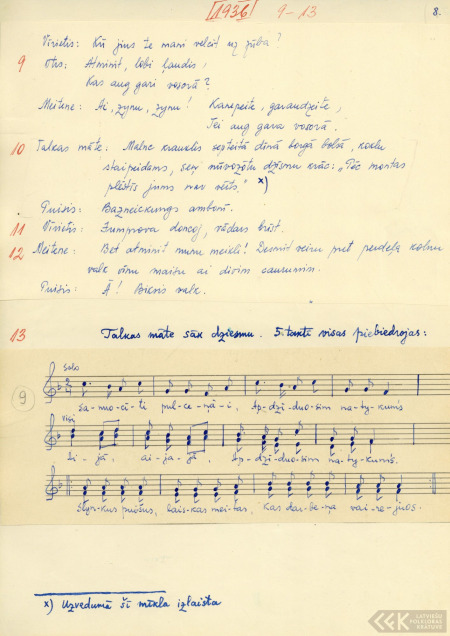 [1936] 9-13
8.
Vīrietis: Kū jius te mani velcit uz zūba?
9 Ūtrs: Atminit, lobi ļaudis,
Kas aug gari vosorā?
Meitene: Ai, zynu, zynu! Kaņepeite, garaudzeite,
Tei aug gara vosorā.
10 Talkas māte: Malnc krauklis septeitā dīnā borgā bolsā, koklu
staipeidams, sevi nūvozōtu dzīsmu krāc: „Pēc montas
plēstīs jums nav vērts" x)
Puisis: Bazneickungs ambonī.
11 Vīrietis: Jumprova doncoj, vādars brīst.
12 Meitene: Bet atminit munu meikli! Desmit veiru pret pendeļa kolnu
valk vīnu maisu ai divim caurumim.
Puisis: Ā! Biksis valk.
13 Talkas māte sāk dziesmu. 5. taktī visas piebiedrojas:
Solo
9
Sa-mu-ci-ti pul-ce-ņā-i, Ap-dzi-duo-sim na-ty-kumis
visi
Ai-jā, ai-ja-jā, Ap-dzi-duo-sim na-ty-kumis.
Styp-rus puišus, dais-kas mei-tas, Kas dar-be-ņa vai-ro-juos.
x) Uzvedumā šī mīkla izlaista
LATVIEŠU
FOLKLORAS
KRĀTUVE